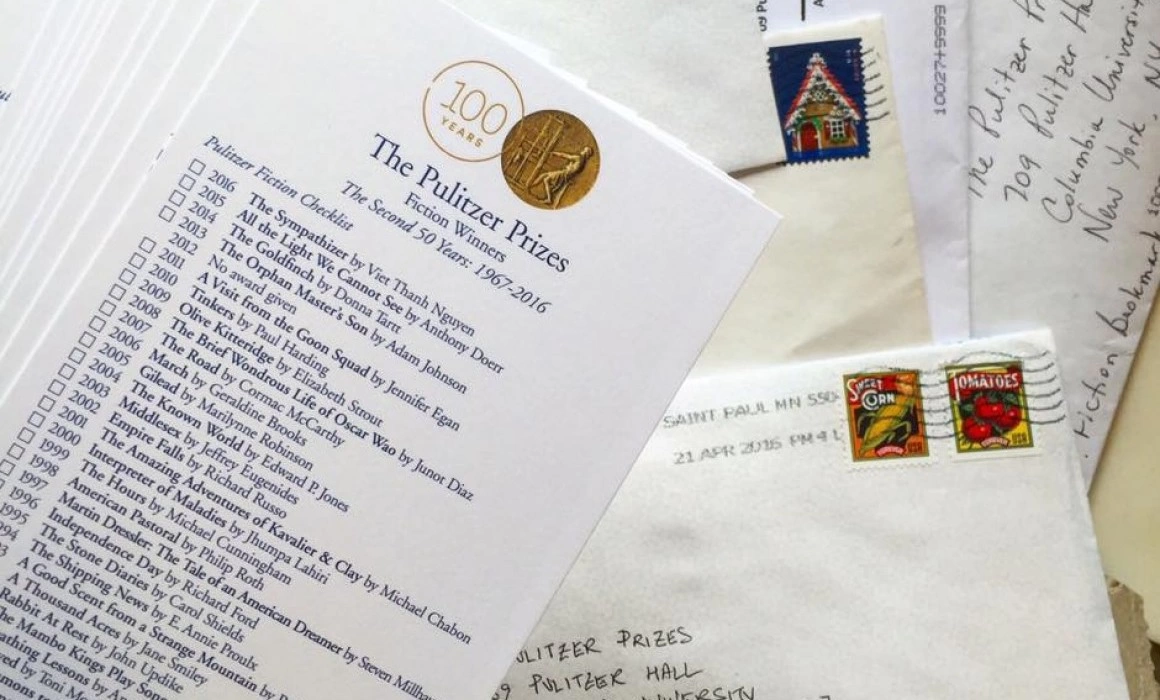 100
YEARS
The Pulitzer Prizes
Fiction Winners
The Second 50 Years: 1967-2016
Pulitzer Fiction Checklist
2016 The Sympathizer by Viet Thanh Nguyen
2015 All the Light We Cannot See by Anthony Doerr
2014 The Goldfinch by Donna Tartt
2013 The Orphan Master's Son by Adam Johnson
2012 No award given
2011 A Visit from the Goon Squad by Jennifer Egan
2010 Tinkers by Paul Harding
2009 Olive Kitteridge by Elizabeth Strout
2008 The Brief Wondrous Life of Oscar Wao by Junot Diaz
2007 The Road by Cormac McCarthy
2006 March by Geraldine Brooks
2005 Gilead by Marilynne Robinson
2004 The Known World by Edward P. Jones
2003 Middlesex by Jeffrey Eugenides
2002 Empire Falls by Richard Russo
2001 The Amazing Adventures of Kavalier & Clay by Michael Chabon
2000 Interpreter of Maladies by Jhumpa Lahiri
1999 The Hours by Michael Cunningham
1998 American Pastoral by Philip Roth
1997 Martin Dressler: The Tale of an American Dreamer by Steven Millha
1996 Independence Day by Richard Ford
1995 The Stone Diaries by Carol Shields
94 The Shipping News by E. Annie Proulx
93 A Good Scent from a Strange Mountain by
A Thousand Acres by Jane Smiley
Rabbit At Rest by John Updike
he Mambo Kings Play Song
athing Lessons by An
ved by Toni Mo
mmons to
1002746555
The Pulitzer Pr
709 Pulitzer Ha
Columbia Universit
New York, NY
Fiction Bookmark
SAINT PAUL MN 550
21 APR 2016 PM 4 L
SWEET
CORN
FOREVER USA
TOMATOES
FOREVER USA
ULITZER PRIZES
09 PULITZER HALL
UNIVERSITY